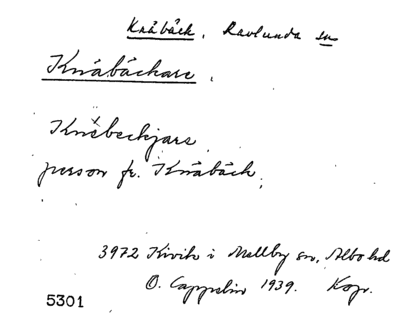 Knäbäck, Ravlunda sn
Knäbäckare.
Knäbeckjara
person fr. Knäbäck.
3972 Kivik i Mellby sn, Albo hd
O. Cappelin 1939. Kop.
5301